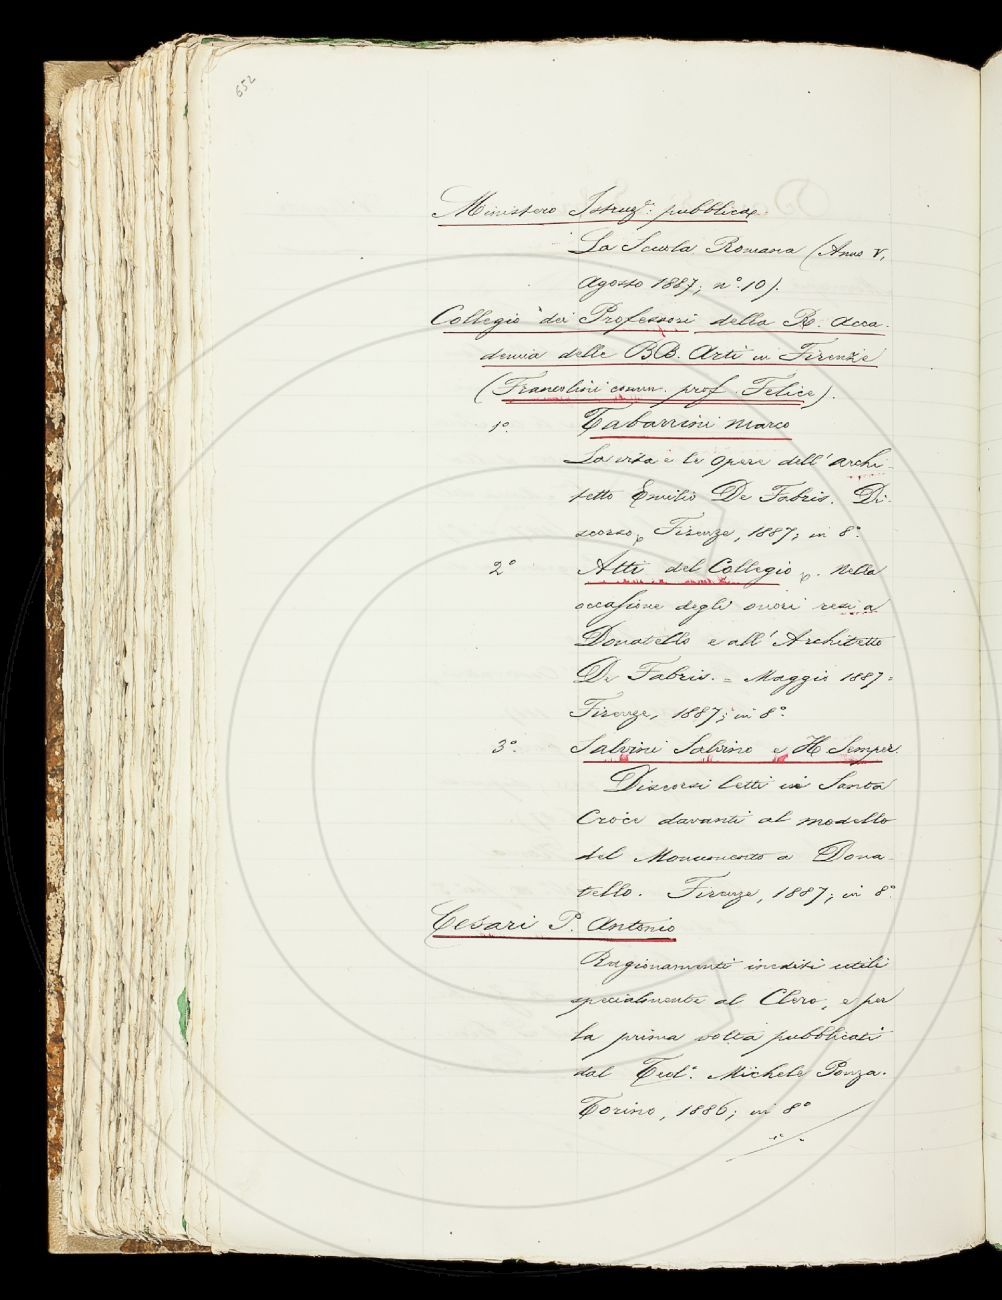 652
Ministero Istruz.e: pubblica.
La Scuola Romana (Anno V,
Agosto 1887; n.o 10).
Collegio dei Professori della R. Acca-
demia delle BB. Arti in Firenze
(Francolini comm. prof Felice).
1o. Tabarrini Marco
La vita e le opere dell' archi-
tetto Emilio De Fabris. Di-
scorso, Firenze, 1887; in 8o.
2o Atti del Collegio p. nella
occasione degli onori resi a
Donatello e all' Architetto
De Fabris. = Maggio 1887 =
Firenze, 1887; in 8o.
3o. Salvini Salvino e H Semper.
Discorsi letti in Santa
Croce davanti al modello
del Monumento a Dona-
tello. Firenze, 1887; in 8o.
Cesari P. Antonio
Ragionamenti inediti utili
specialmente al Clero, e per
la prima volta pubblicati
dal Teol.o Michele Ponza.
Torino, 1886; in 8o